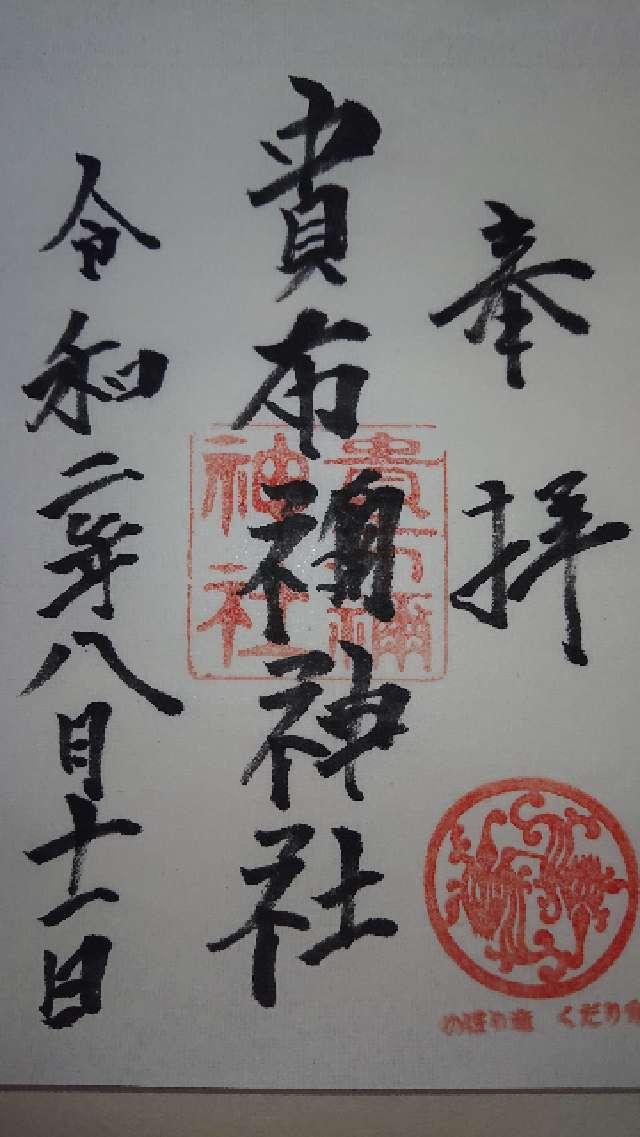 奉拝
貴布禰神社
令和二年八月十一日
貴布禰
神社
のぼり竜 くだり竜